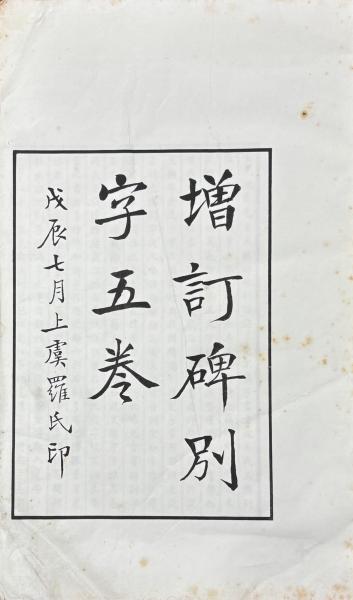 增訂碑別
字五卷
戊辰七月上虞羅氏印